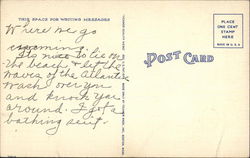 THIS SPACE FOR WRITING MESSAGES
Where we go
swimming.
It nice to lie on
the beach & let the
waves of the Atlantic
wash over you
and knock you
around. I got a
bathing suit.
POST CARD
PLACE
ONE CENT
STAMP
HERE
MADE IN U.S.A.